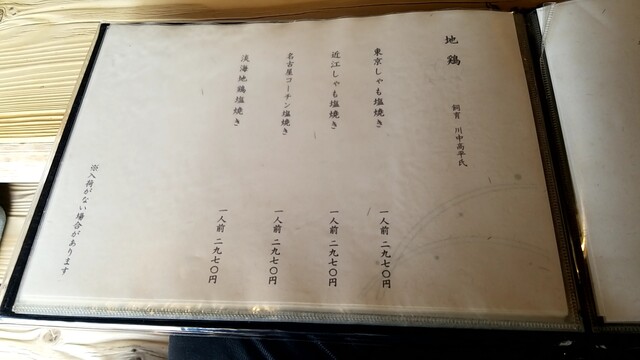 地鶏
飼育 川中高平氏
東京しゃも塩焼き 一人前 二九七〇円
近江しゃも塩焼き 一人前 二九七〇円
名古屋コーチン塩焼き 一人前 二九七〇円
淡海地鶏塩焼き 一人前 二九七〇円
※入荷がない場合があります